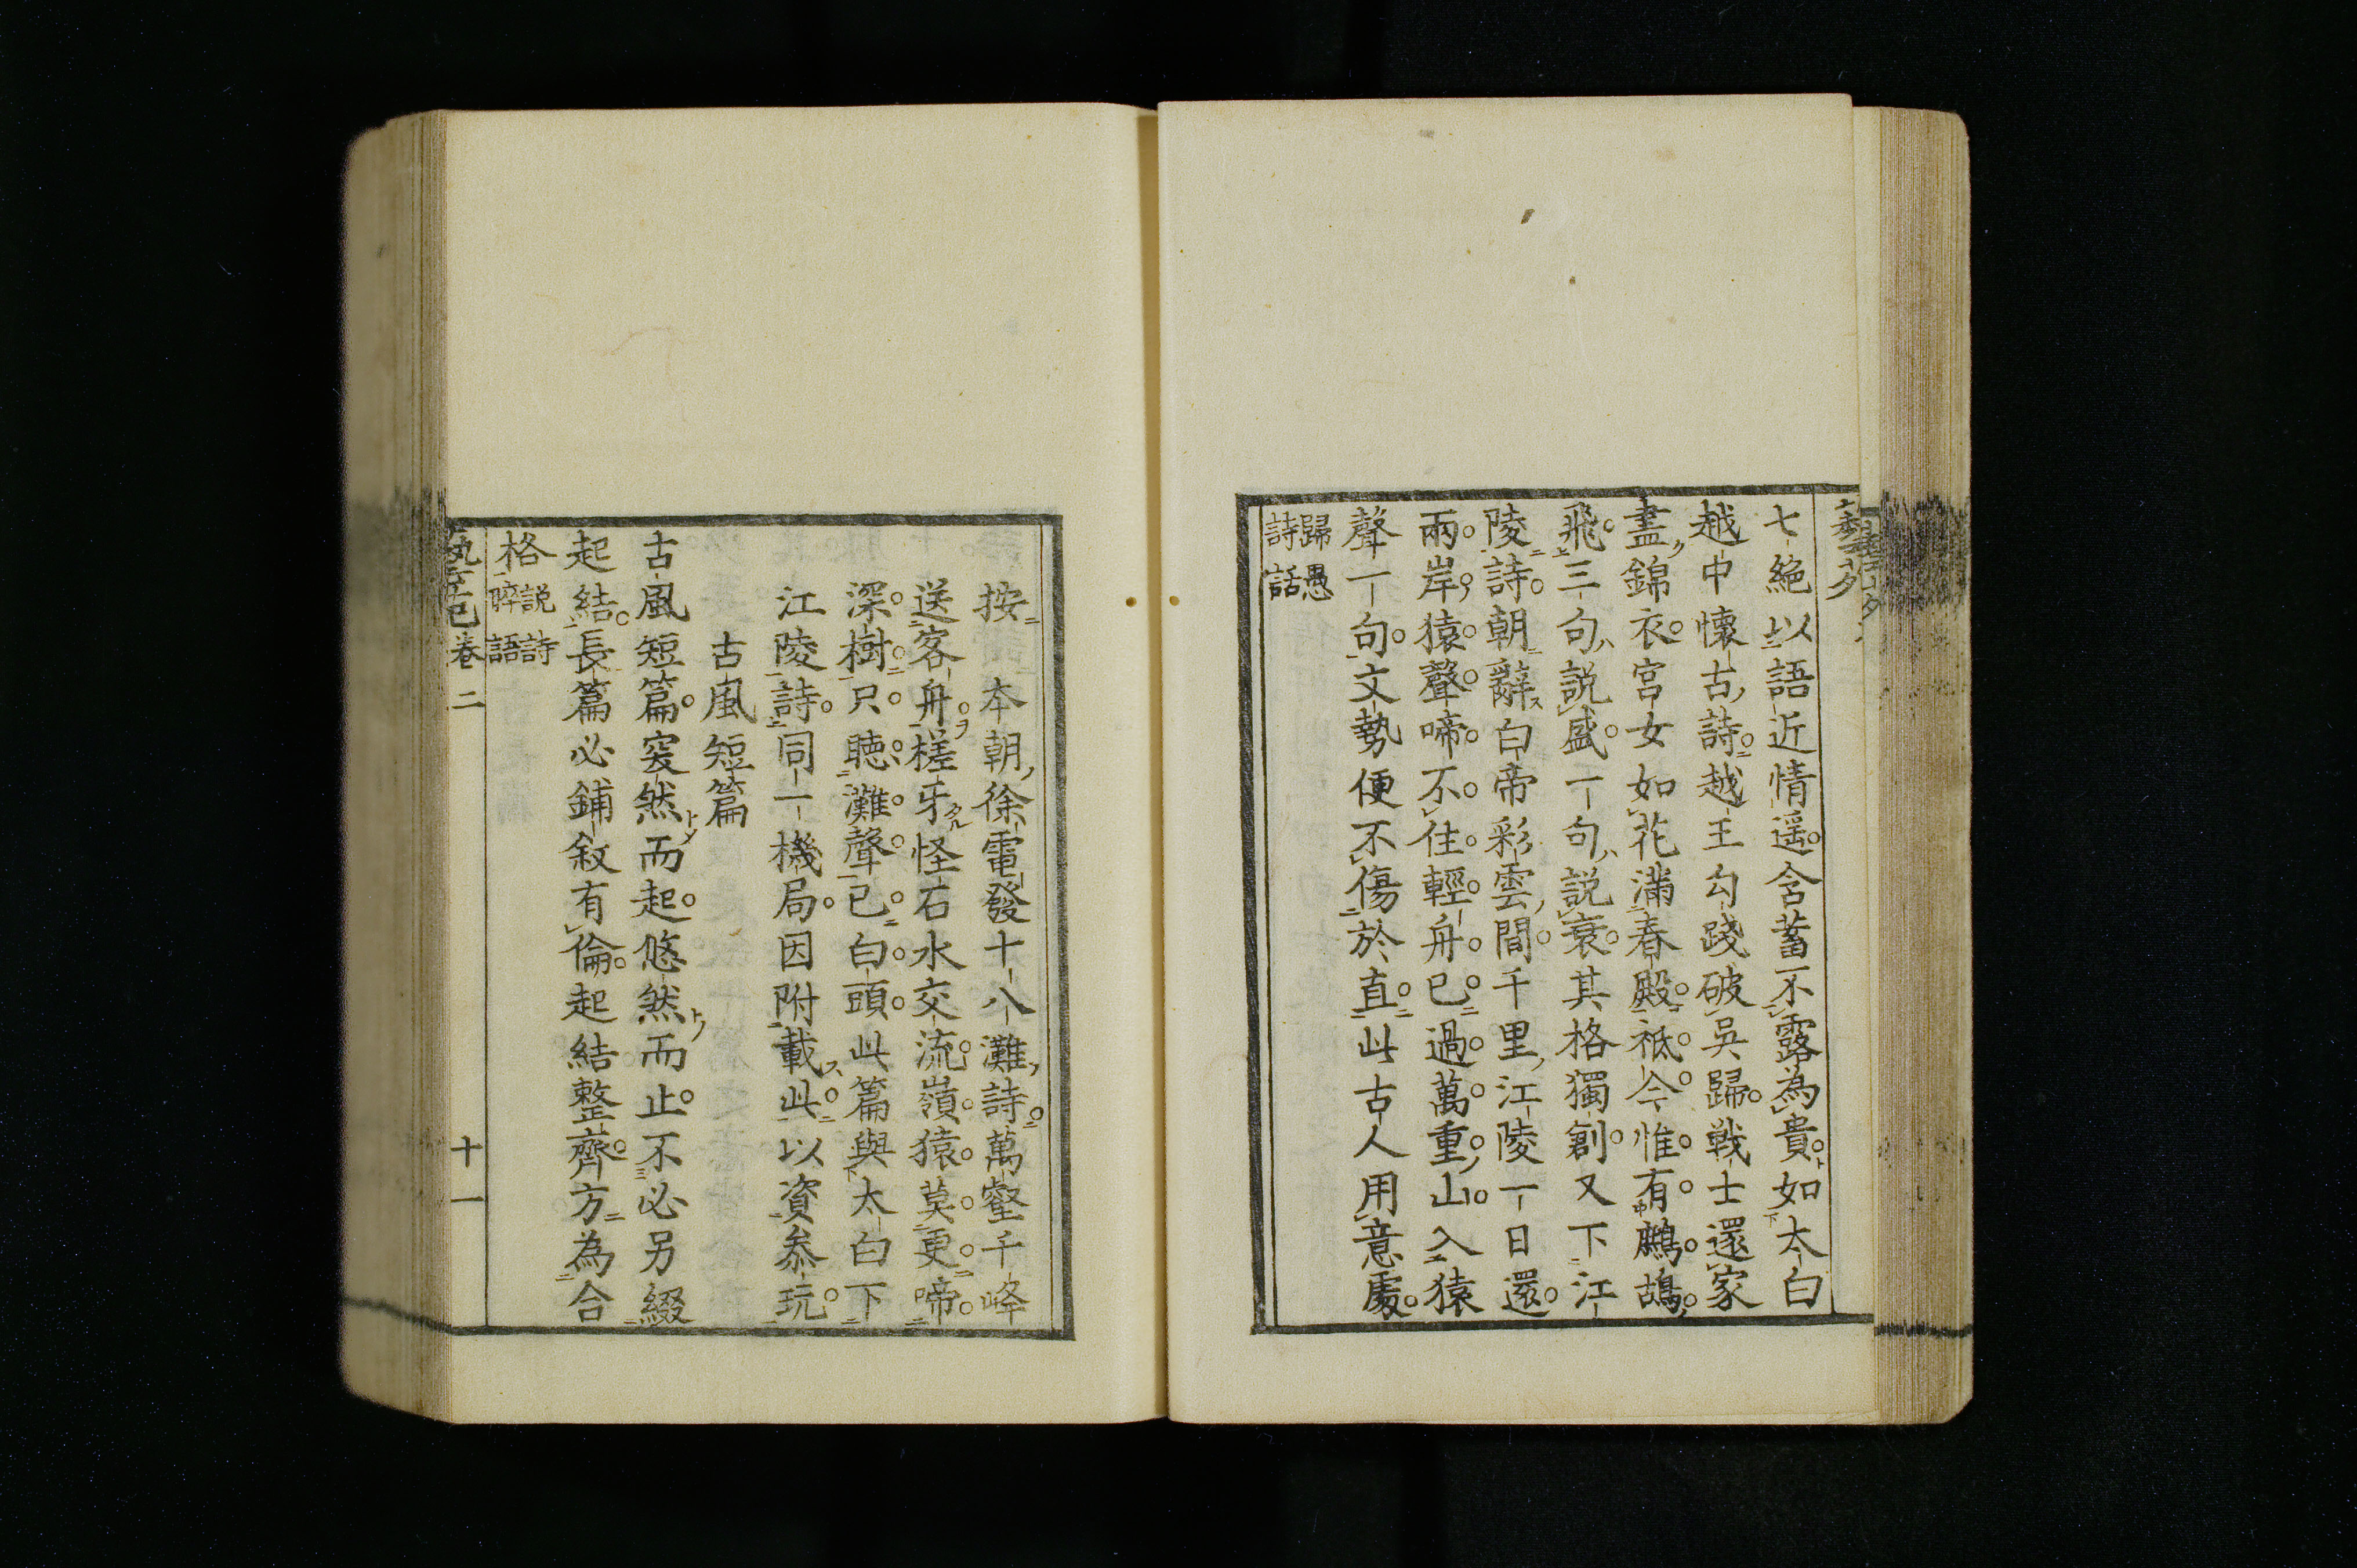 七絶以語近情遥含蓄不露為貴如太白
越中懷古詩越王勾踐破吳歸戦士還家
盡錦衣宮女如花滿春殿祗今惟有鷓鴣
飛三句説盛一句説衰其格獨創又下江
陵詩朝辭白帝彩雲間千里江陵一日還
兩岸猿聲啼不住輕舟已過萬重山入猿
聲一句文勢便不傷於直此古人用意處
歸愚
詩話
按 本朝徐電發十八灘詩萬壑千峰
送客舟槎牙怪石水交流嶺猿莫更啼
深樹只聴灘聲已白頭此篇與太白下
江陵詩同一機局因附載此以資叅玩
古風短篇
古風短篇突然而起悠然而止不必另綴
起結長篇必鋪敘有倫起結整齊方為合
格
説詩
晬語
卷二
十一